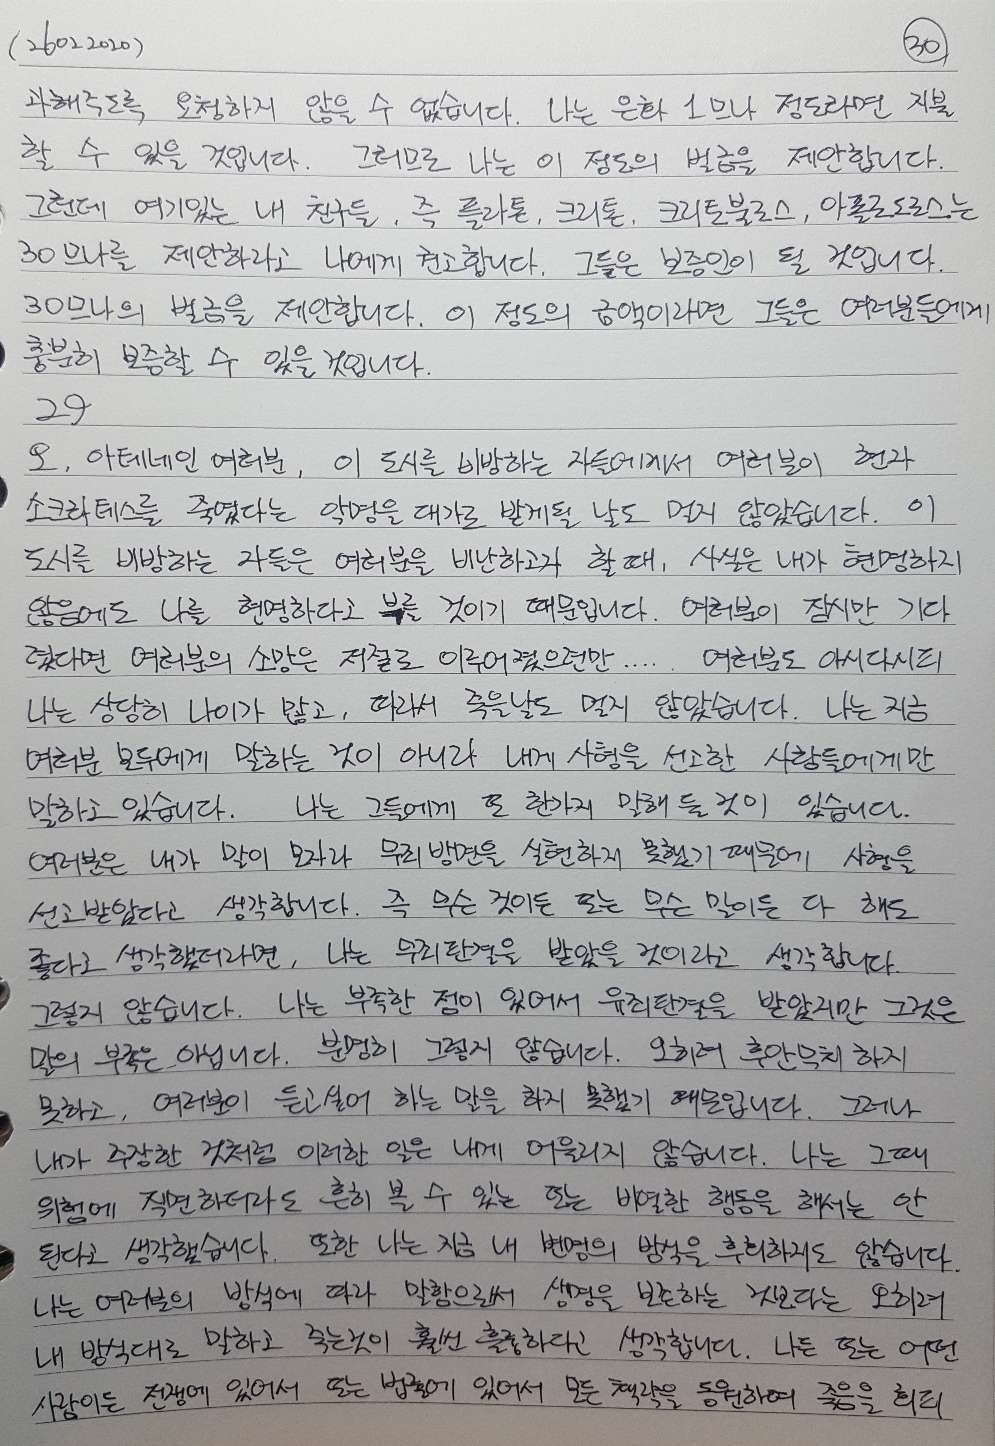 (26022020) 30
과해주도록 요청하지 않을 수 없습니다. 나는 은화 1므나 정도라면 지불
할 수 있을 것입니다. 그러므로 나는 이 정도의 벌금을 제안합니다.
그런데 여기있는 내 친구들, 즉 플라톤, 크리톤, 크리토불로스, 아폴로도로스는
30므나를 제안하라고 나에게 권고합니다. 그들은 보증인이 될 것입니다.
30므나의 벌금을 제안합니다. 이 정도의 금액이라면 그들은 여러분들에게
충분히 보증할 수 있을 것입니다.
29
오, 아테네인 여러분, 이 도시를 비방하는 자들에게서 여러분이 현자
소크라테스를 죽였다는 악명을 대가로 받게될 날도 멀지 않았습니다. 이
도시를 비방하는 자들은 여러분을 비난하고자 할 때, 사실은 내가 현명하지
않음에도 나를 현명하다고 부를 것이기 때문입니다. 여러분이 잠시만 기다
렸다면 여러분의 소망은 저절로 이루어졌으련만..... 여러분도 아시다시피
나는 상당히 나이가 많고, 따라서 죽을날도 멀지 않았습니다. 나는 지금
여러분 모두에게 말하는 것이 아니라 내게 사형을 선고한 사람들에게만
말하고 있습니다. 나는 그들에게 또 한가지 말해 둘 것이 있습니다.
여러분은 내가 말이 모자라 무죄방면을 실현하지 못했기 때문에 사형을
선고받았다고 생각합니다. 즉 무슨 것이든 또는 무슨 말이든 다 해도
좋다고 생각했더라면, 나는 무죄판결을 받았을 것이라고 생각합니다.
그렇지 않습니다. 나는 부족한 점이 있어서 유죄판결을 받았지만 그것은
말의 부족은 아닙니다. 분명히 그렇지 않습니다. 오히려 후안무치 하지
못하고, 여러분이 듣고싶어 하는 말을 하지 못했기 때문입니다. 그러나
내가 주장한 것처럼 이러한 일은 내게 어울리지 않습니다. 나는 그때
위험에 직면하더라도 흔히 볼 수 있는 또는 비열한 행동을 해서는 안
된다고 생각했습니다. 또한 나는 지금 내 변명의 방식을 후회하지도 않습니다.
나는 여러분의 방식에 따라 말함으로써 생명을 보존하는 것보다는 오히려
내 방식대로 말하고 죽는것이 훨씬 훌륭하다고 생각합니다. 나든 또는 어떤
사람이든 전쟁에 있어서 또는 법정에 있어서 모든 책략을 동원하여 죽음을 회피